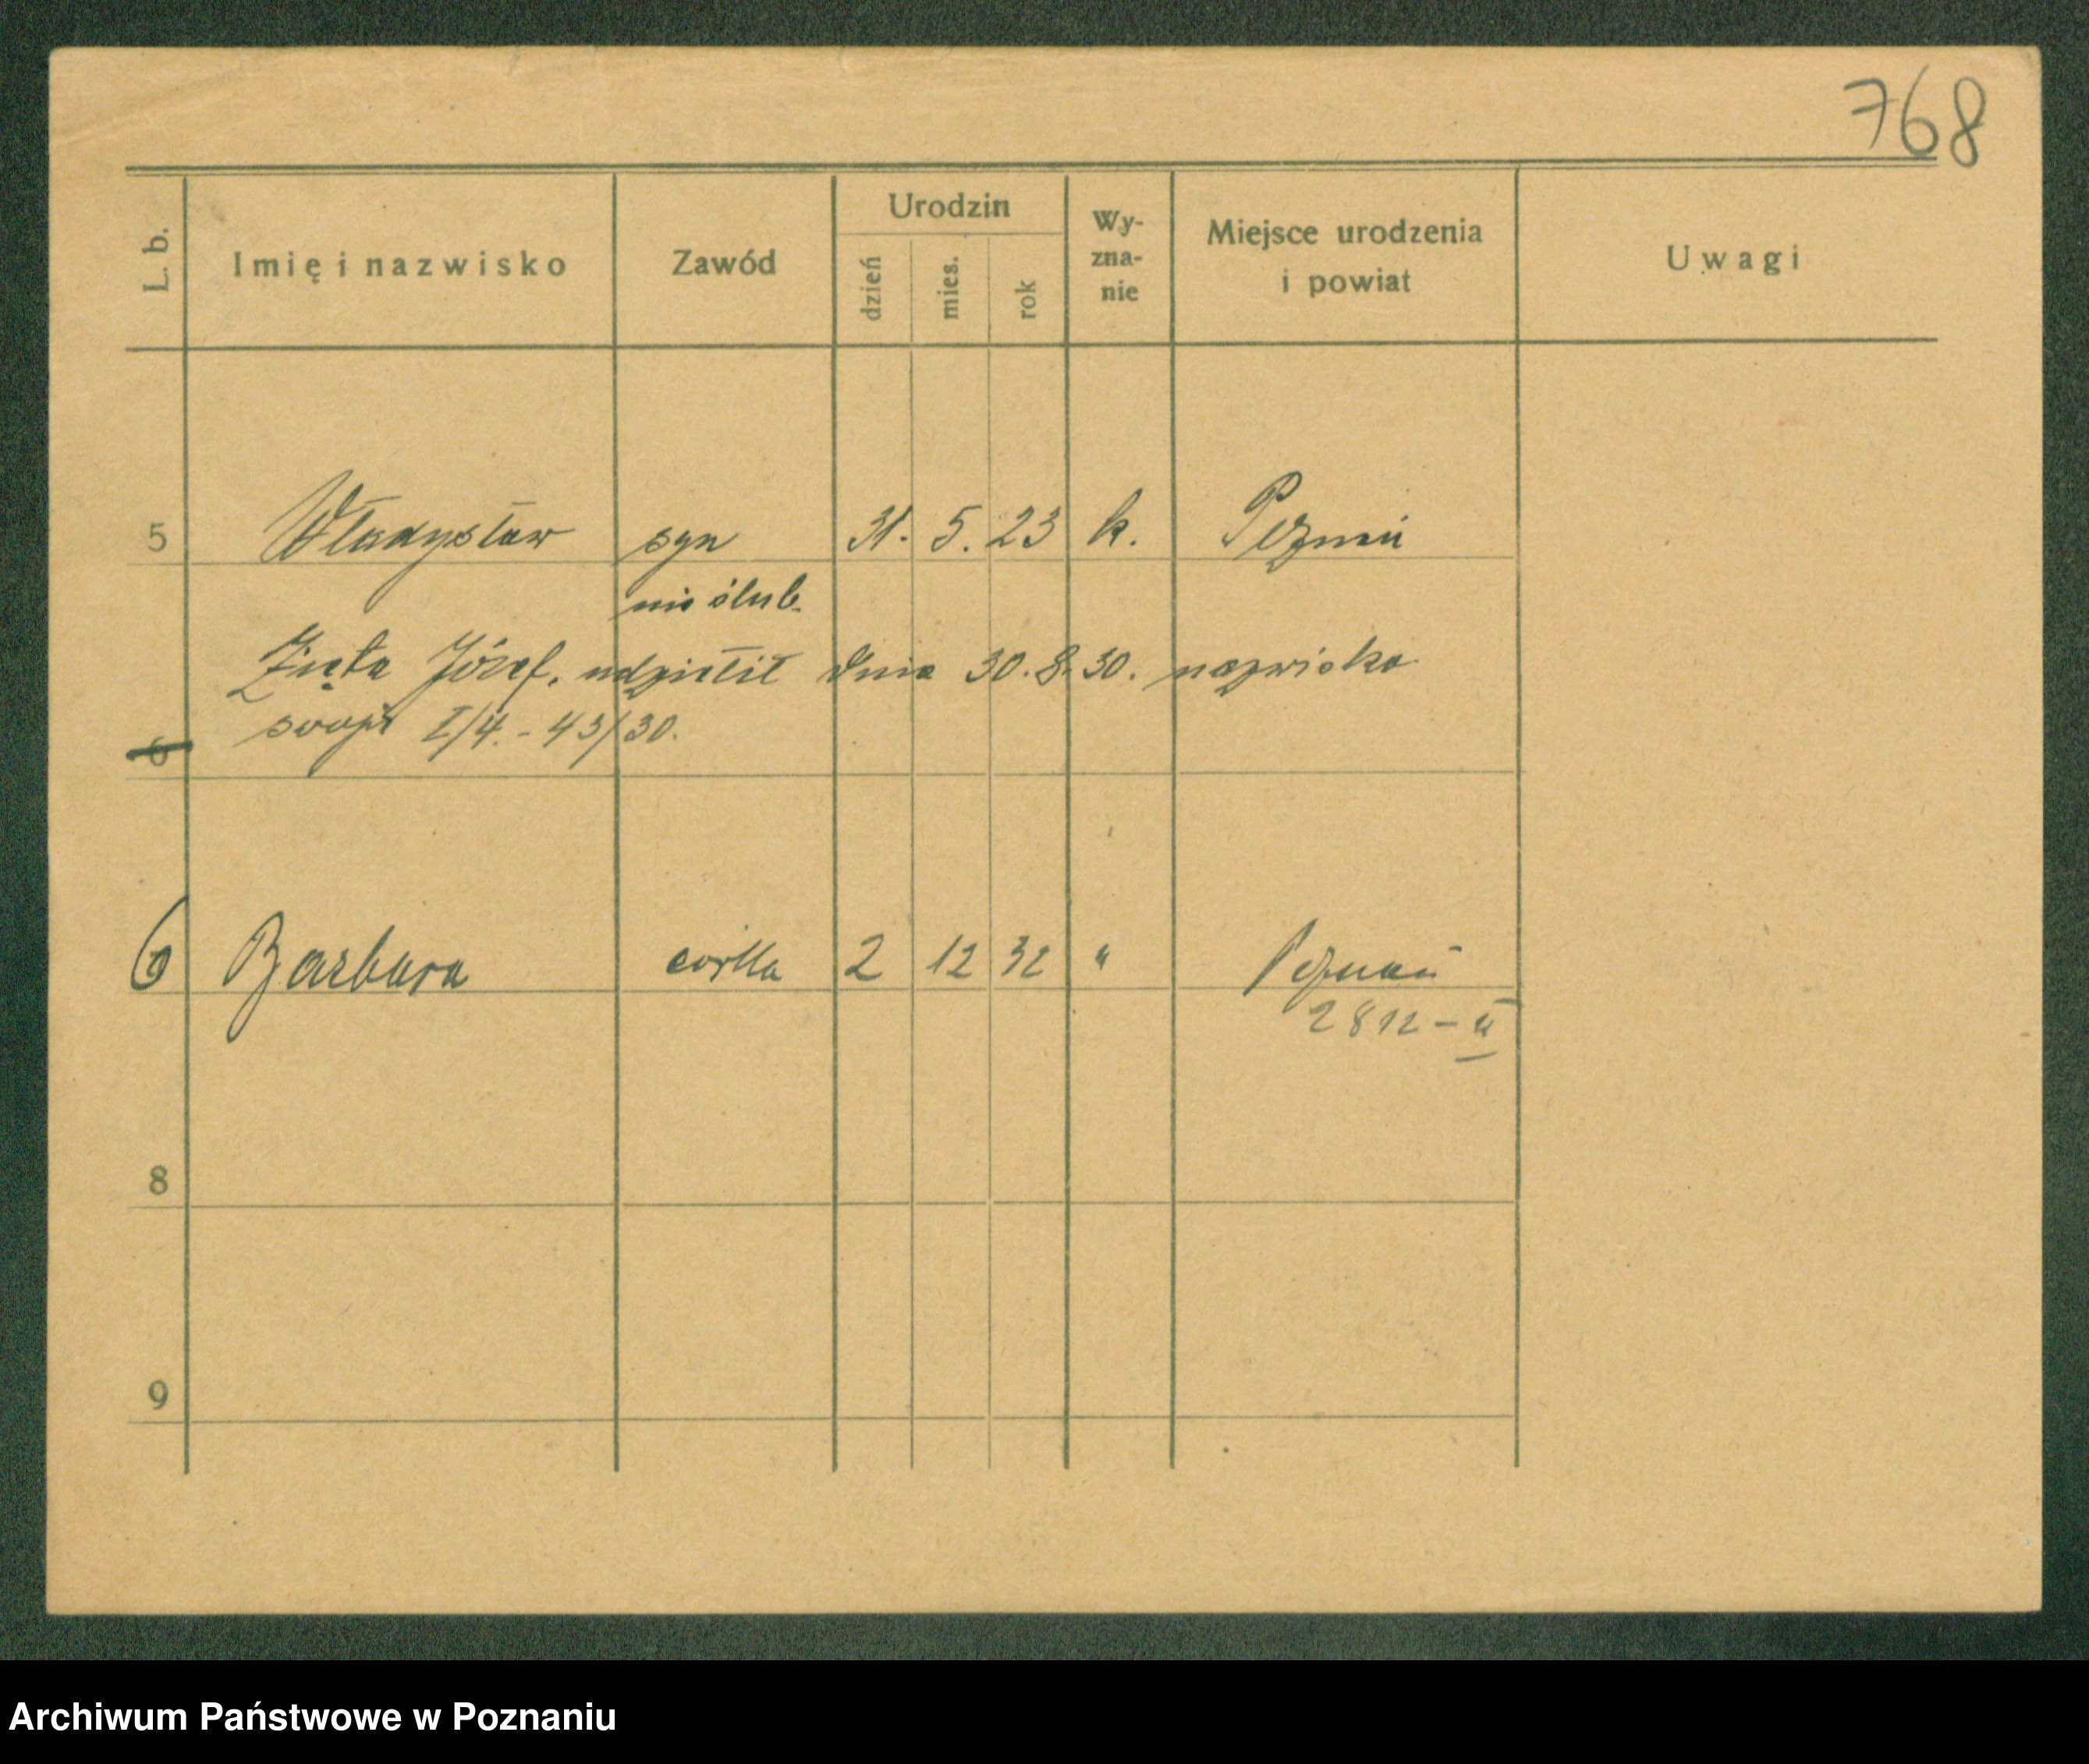 768
L. b. Imię i nazwisko Zawód Urodzin dzień mies. rok Wy-zna-nie Miejsce urodzenia i powiat Uwagi
5 Władysław syn 31. 5. 23 k. Poznań
nieślub.
Zięta Józef, udzielił dnia 30.8.30. nazwiska
swego I/4.-43/30.
6
6 Barbara córka 2 12 32 " Poznań
2812-II
8
9
Archiwum Państwowe w Poznaniu